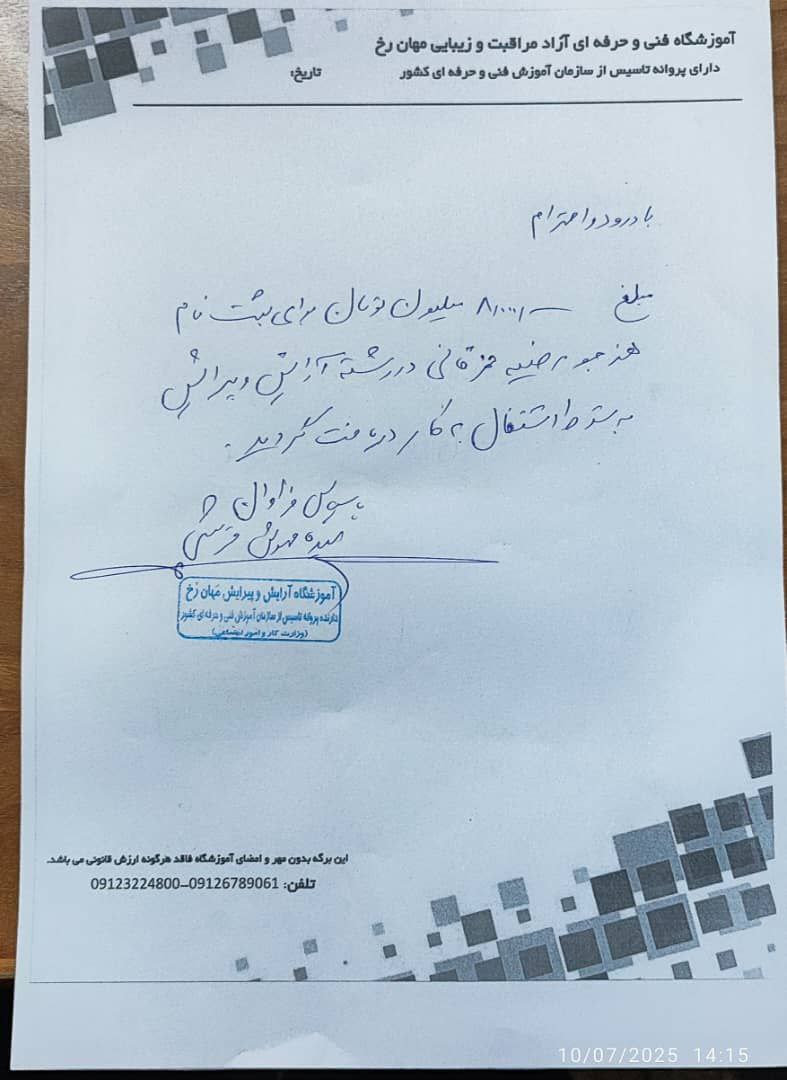 آموزشگاه فنی و حرفه ای آزاد مراقبت و زیبایی مهان رخ
دارای پروانه تاسیس از سازمان آموزش فنی و حرفه ای کشور
تاریخ:
با درود و احترام
مبلغ ۸/۰۰۰/۰۰۰ میلیون تومان برای ثبت نام
هنرجو رضیه در رشته آرایش و پیرایش
به شرط اشتغال به کار دریافت گردید.
با سپاس فراوان
مهوش قرشی
آموزشگاه آرایش و پیرایش مَهان رُخ
دارنده پروانه تاسیس از سازمان آموزش فنی و حرفه ای کشور
(وزارت کار و امور اجتماعی)
این برگه بدون مهر و امضای آموزشگاه فاقد هرگونه ارزش قانونی می باشد.
تلفن: 09126789061-09123224800
10/07/2025 14:15